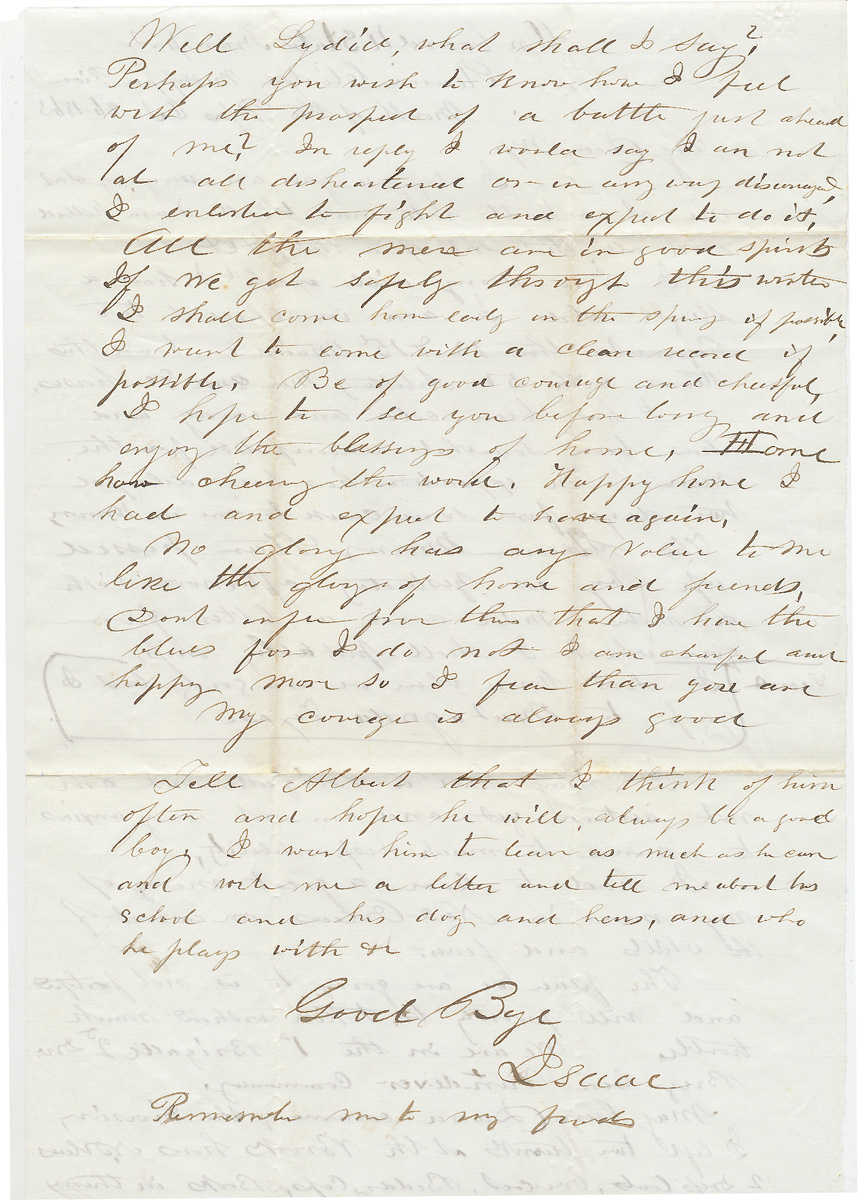 Well Lydia, what shall I say?
Perhaps you wish to know how I feel
with the prospect of a battle just ahead
of me? In reply I would say I am not
at all disheartened or in any way discouraged,
I enlisted to fight and expect to do it,
All the men are in good spirits
If we get safely through this winter
I shall come home early in the spring if possible,
I want to come with a clean record if
possible. Be of good courage and cheerful,
I hope to see you before long and
enjoy the blessings of home, Home
how cheering the word. Happy home I
had and expect to have again,
No glory has any value to me
like the glory of home and friends,
Dont infer from this that I have the
blues for I do not I am cheerful and
happy more so I fear than you are
My courage is always good
Tell Albert that I think of him
often and hope he will always be a good
boy. I want him to learn as much as he can
and write me a letter and tell me about his
school and his dog and hens, and who
he plays with &c
Good Bye
Isaac
Remember me to my friends